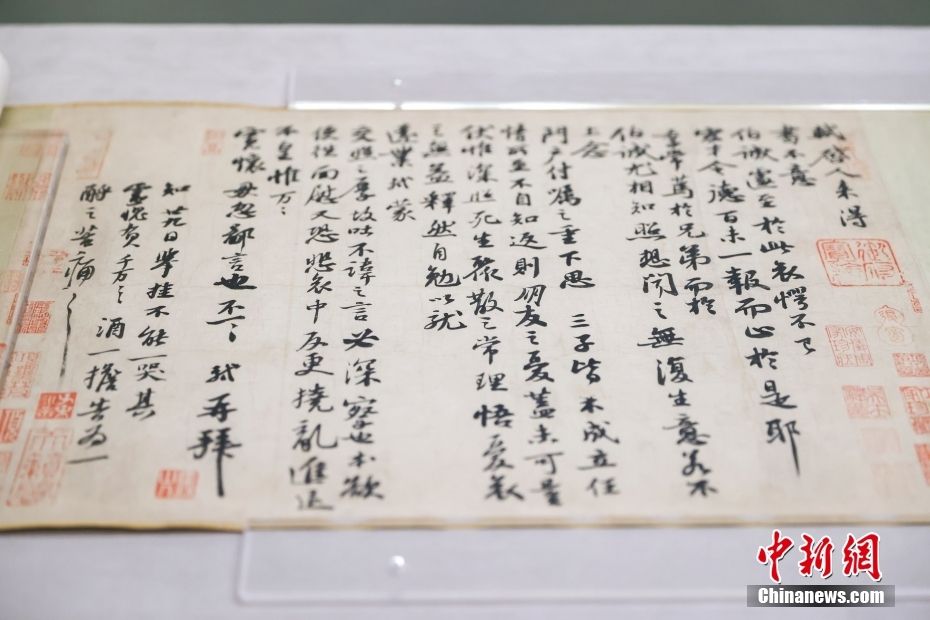 軾啓人來得
書不意
伯誠遽至於此哀愕不已
宏才令德百未一報而止於是耶
季常篤於兄弟而於
伯誠尤相知照想聞之無復生意若不
上念
門戶付囑之重下思三子皆不成立任
情所至不自知返則朋友之憂蓋未可量
伏惟深照死生聚散之常理悟憂哀
之無益釋然自勉以就
遠業軾蒙
交照之厚故吐不諱之言必深察也本欲
便往面慰又恐悲哀中反更撓亂進退
不皇惟萬萬
寬懷毋忽鄙言也不一一軾再拜
知廿九日舉掛不能一哭其
靈愧負千万千万酒一擔告為一
酹之苦痛苦痛
中新網
Chinanews.com